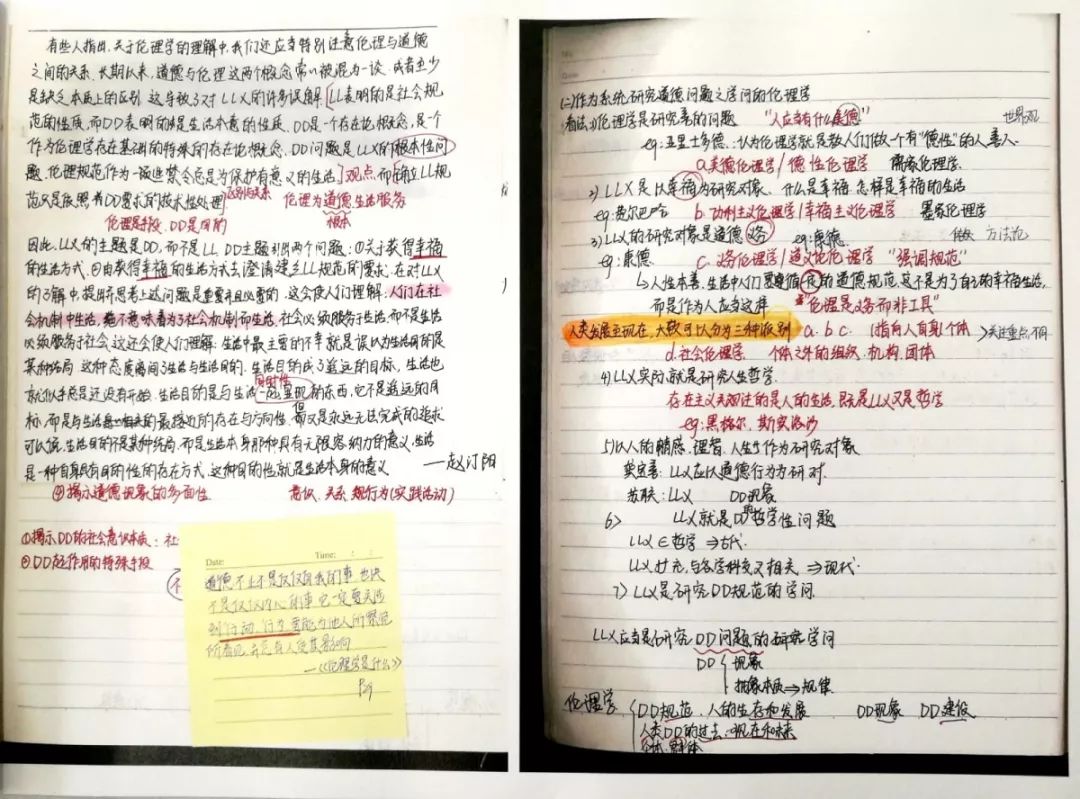 有些人指出,关于伦理学的理解中,我们还应当特别注意伦理与道德
之间的关系.长期以来,道德与伦理这两个概念常以被混为一谈.或者至少
是缺乏本质上的区别.这导致了对LLX的许多误解.LL表明的是社会规
范的性质,而DD表明的是生活本意的性质.DD是一个存在论概念,是一个
作为伦理学存在基础的特殊的存在论概念.DD问题是LLX的根本性问
题.伦理规范作为一些禁令总是为保护有意义的生活]观点,而确立LL规
范只是按照DD要求的技术性处理 区别与关系 伦理为道德生活服务
伦理是手段,DD是目的 根本
因此,LLX的主题是DD,而不是LL.DD主题引出两个问题:①关于获得幸福
的生活方式.②由获得幸福的生活方式去澄清建立LL规范的要求.在对LLX
的了解中,提出并思考上述问题是重要并且必要的.这会使人们理解:人们在社
会机制中生活,绝不意味着为了社会机制而生活.社会必须服务于生活,而不是生活
必须服务于社会,这还会使人们理解.生活中最主要的不幸就是误认为生活目的是
某种结局.这种态度离间了生活与生活目的.生活目的成了遥远的目标,生活也
就似乎总是还没有开始.生活目的是与生活一起呈现的东西,它不是遥远的目
同时性
标,而是与生活最接近的存在与方向性.但又是永远无法完成的追求
可以说,生活目的不是某种结局,而是生活本身那种具有无限容纳力的意义.生活
是一种自身具有目的性的存在方式.这种目的性就是生活本身的意义 ——赵汀阳
③揭示道德现象的多面性 意识.关系.规行为(实践活动)
①揭示DD的社会意识本质:社
②DD起作用的特殊手段
不
Date: Time: : :
道德不止不是仅仅自我的事,也决
不是仅仅内心的事,它一定要关涉
到行动.行为要能为他人所察觉
所看见,并总有人受其影响
——《伦理学是什么》
P9
(二)作为系统研究道德问题之学问的伦理学
看法:1)伦理学是研究善的问题 "人应当有什么美德" 世界观
eg:亚里士多德.认为伦理学就是教人们做一个有"德性"的人.善人.
a.美德伦理学/德性伦理学 儒家伦理学.
2) LLX是以幸福为研究对象.什么是幸福.怎样是幸福的生活
eg:费尔巴哈 b.功利主义伦理学/幸福主义伦理学 墨家伦理学
3) LLX的研究对象是道德义务 eg:康德. 做 方法论
eg:康德 c.义务伦理学/道义论伦理学 "强调规范"
↳人性本善.生活中人们要遵循善的道德规范.这不是为了自己的幸福生活,
而是作为人应当这样 "伦理是义务而非工具"
人类发展至现在,大致可以分为三种派别 a.b.c.(指向人自身)个体 >关注重点不同
d.社会伦理学 个体之外的组织.机构.团体
4) LLX实际就是研究人生哲学.
存在主义关注的是人的生活,既是LLX又是哲学
eg:黑格尔.斯宾诺沙
5)以人的情感.理智.人生作为研究对象
黄宣善: LLX应以道德行为为研对.
苏联: LLX DD现象
6> LLX就是DD的哲学性问题
LLX∈哲学 ⇒古代.
LLX扩充,与各学科交叉相关 ⇒现代.
7) LLX是研究DD规范的学问.
LLX应当是研究DD问题的研究学问
DD 现象
抽象本质⇒规律
伦理学 DD规范.人的生存和发展 DD现象 DD建设
人类DD的过去.现在和未来
个体.群体